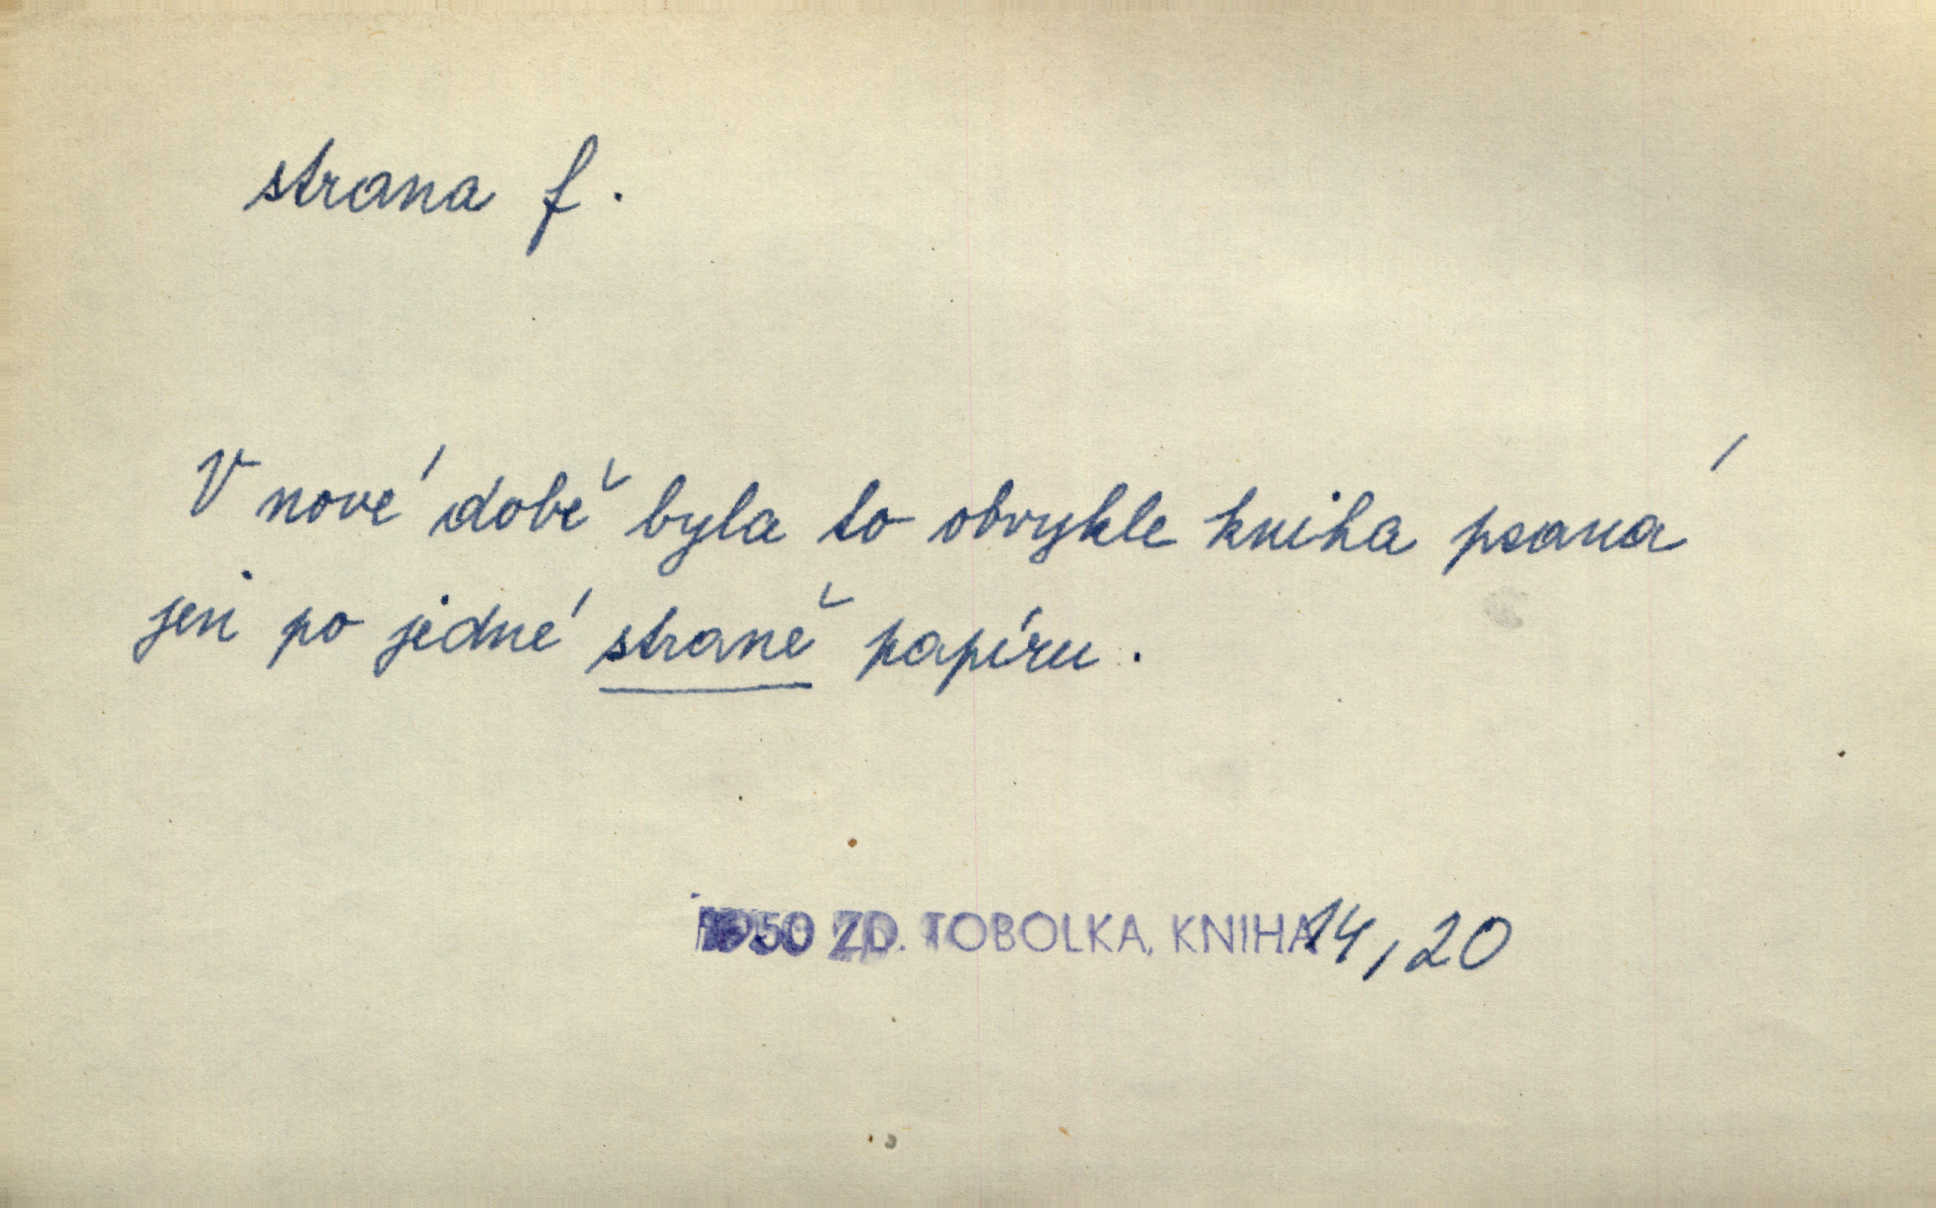 strana f.
V nové době byla to obvykle kniha psaná
jen po jedné straně papíru.
1950 ZD. TOBOLKA, KNIHA 14, 20